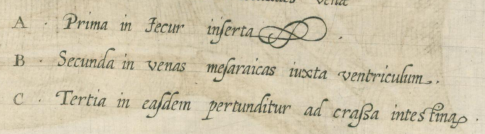 venæ
A · Prima in Iecur inserta .
B · Secunda in venas mesaraicas iuxta ventriculum .
C · Tertia in easdem pertunditur ad crassa intestina .